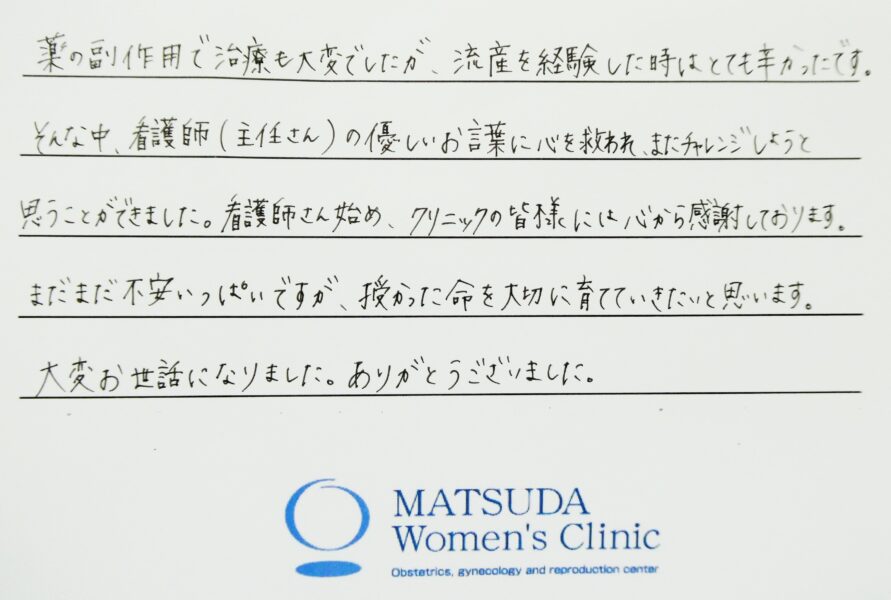 薬の副作用で治療も大変でしたが、流産を経験した時はとても辛かったです。
そんな中、看護師(主任さん)の優しいお言葉に心を救われ、またチャレンジしようと
思うことができました。看護師さん始め、クリニックの皆様には心から感謝しております。
まだまだ不安いっぱいですが、授かった命を大切に育てていきたいと思います。
大変お世話になりました。ありがとうございました。
MATSUDA
Women's Clinic
Obstetrics, gynecology and reproduction center